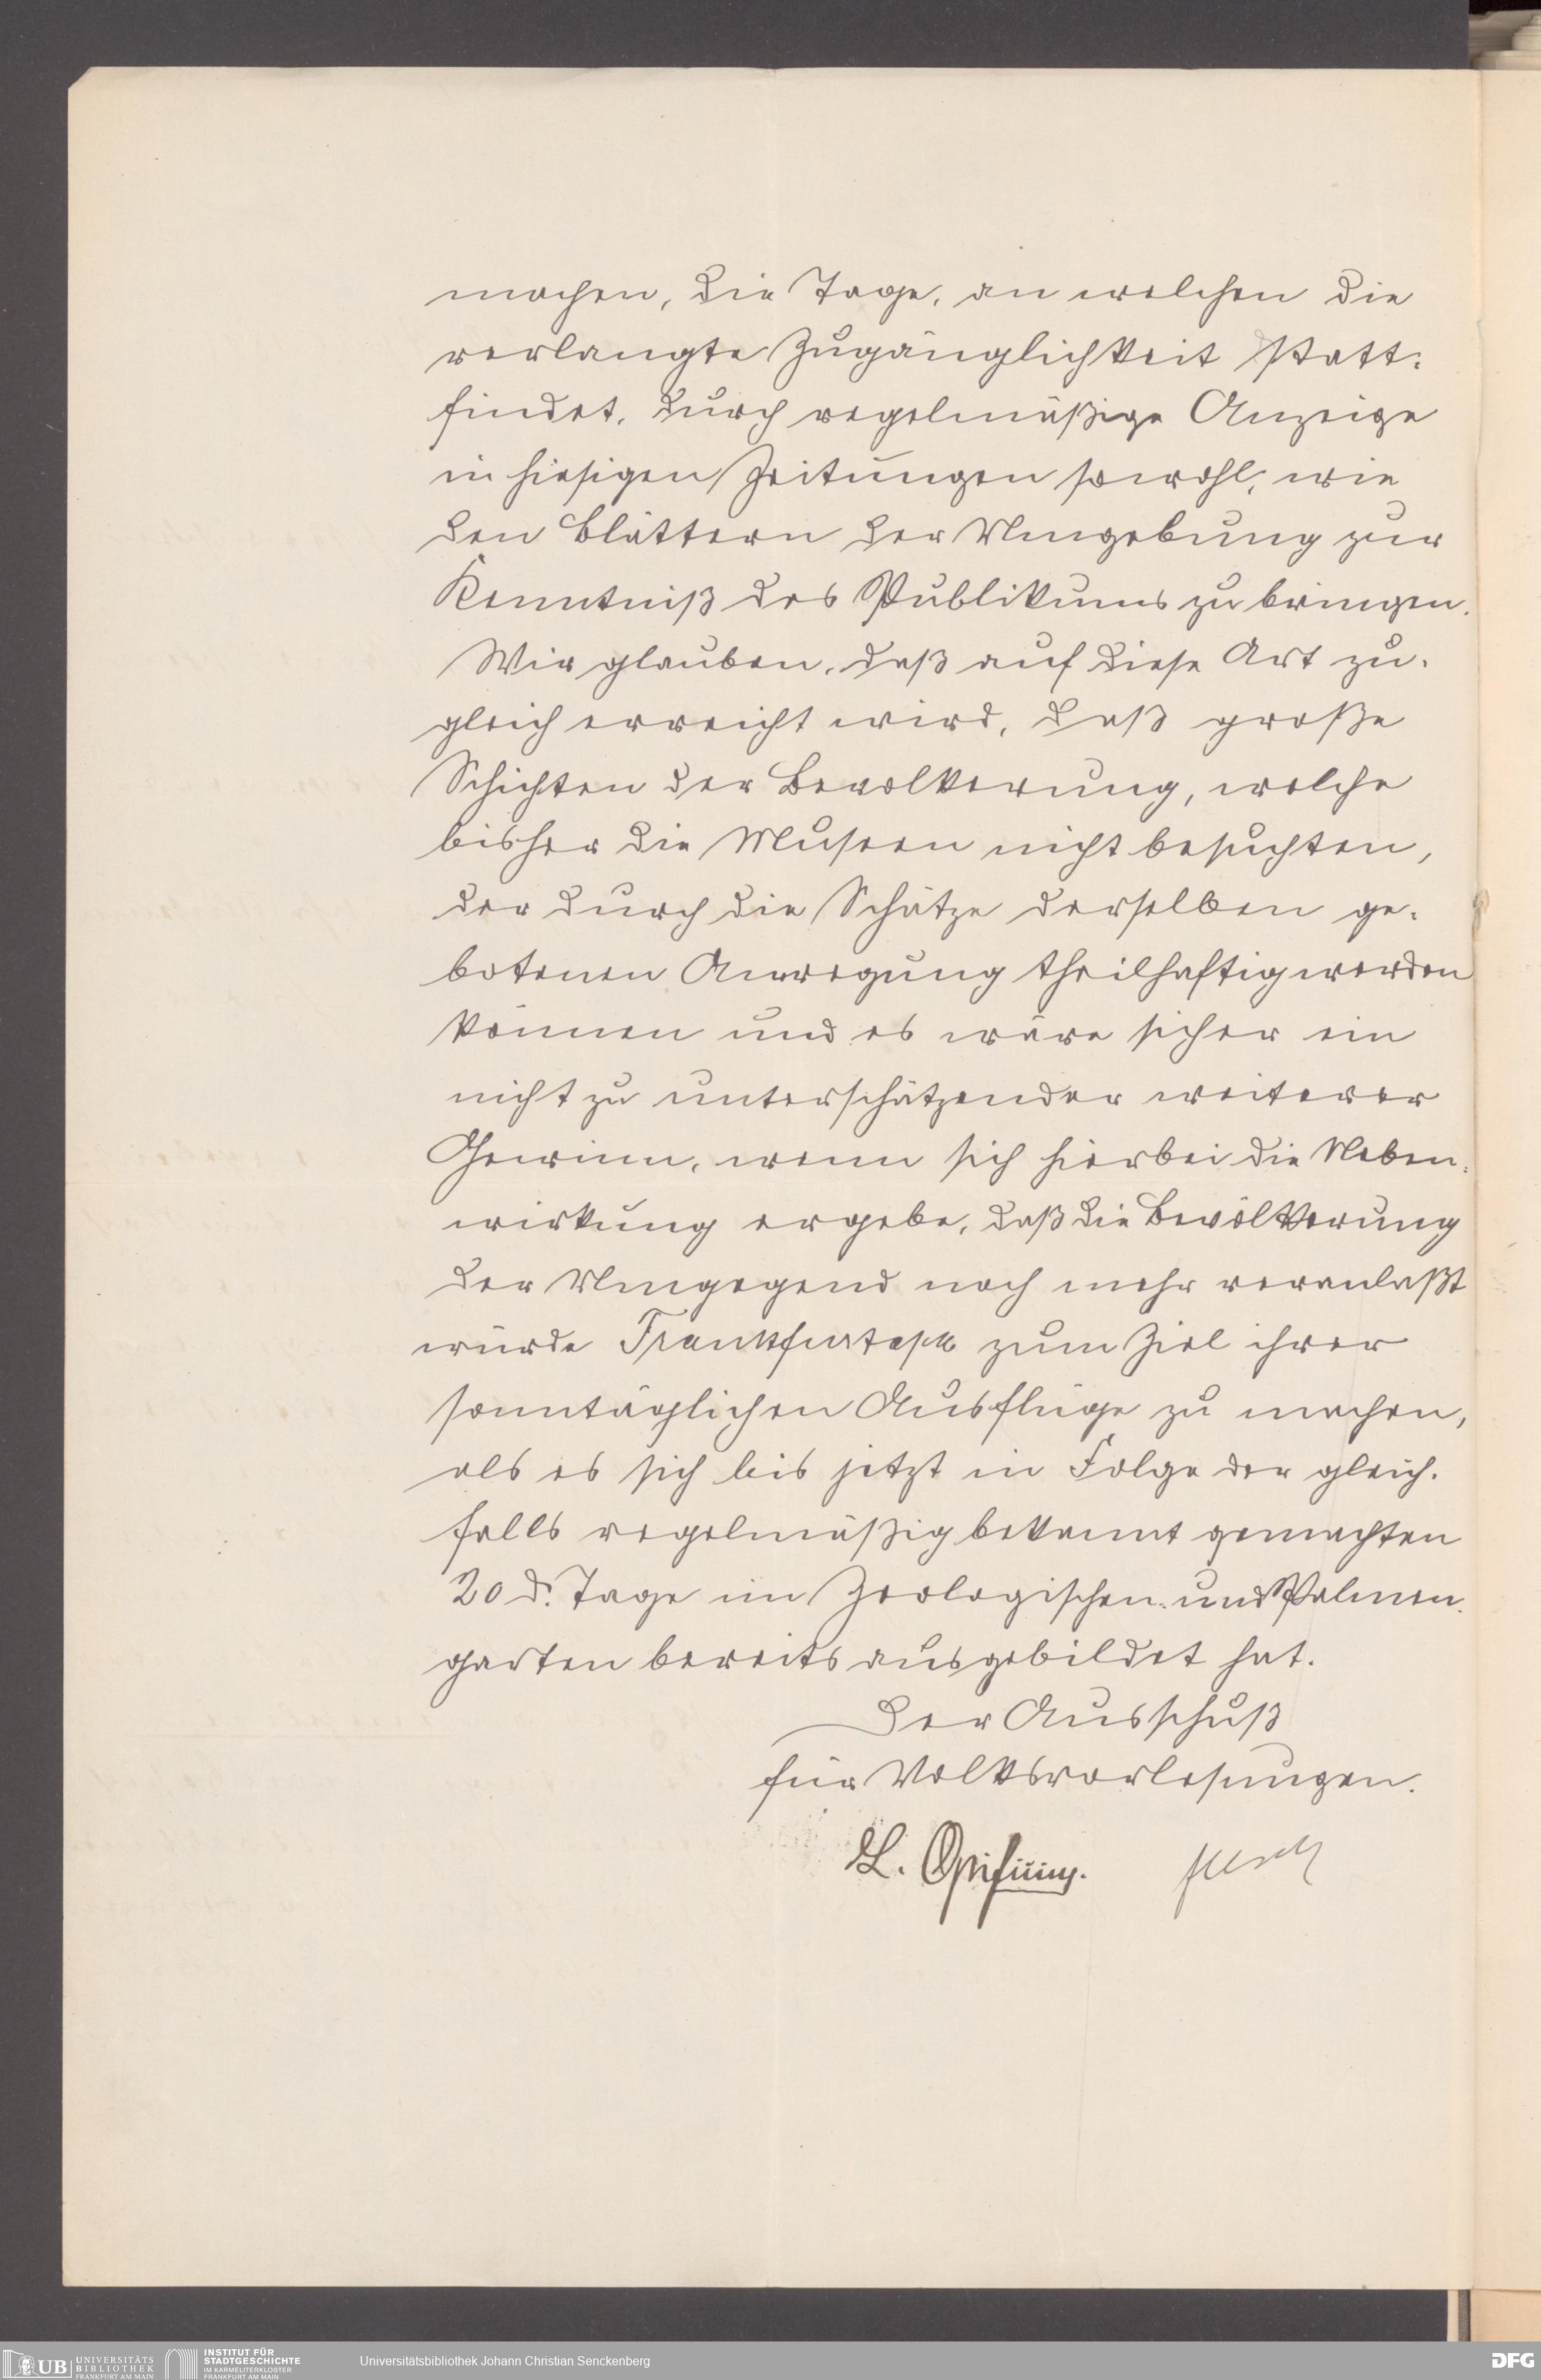 machen, die Tage, an welchen die
verlangte Zugänglichkeit statt-
findet, durch regelmäßige Anzeige
in hiesigen Zeitungen sowohl, wie
den Blättern der Umgebung zur
Kenntniß des Publikums zu bringen.
Wir glauben, daß auf diese Art zu-
gleich erreicht wird, daß große
Schichten der Bevolkerung, welche
bisher die Museen nicht besuchten,
der durch die Schätze derselben ge-
botenen Anregung theilhaftig werden
können und es wäre sicher ein
nicht zu unterschätzender weiterer
Gewinn, wenn sich hierbei die Neben-
wirkung ergebe, daß die Bevölkerung
der Umgegend noch mehr veranlaßt
würde Frankfurt a/M zum Ziel ihrer
sonntäglichen Ausflüge zu machen,
als es sich bis jetzt in Folge der gleich-
falls regelmäßig bekannt gemachten
20 d. Tage im Zoologischen- und Palmen-
garten bereits ausgebildet hat.
Der Ausschuß
für Volksvorlesungen.
L. Opificius.
UB UNIVERSITÄTS BIBLIOTHEK FRANKFURT AM MAIN
INSTITUT FÜR STADTGESCHICHTE IM KARMELITERKLOSTER FRANKFURT AM MAIN
Universitätsbibliothek Johann Christian Senckenberg
DFG